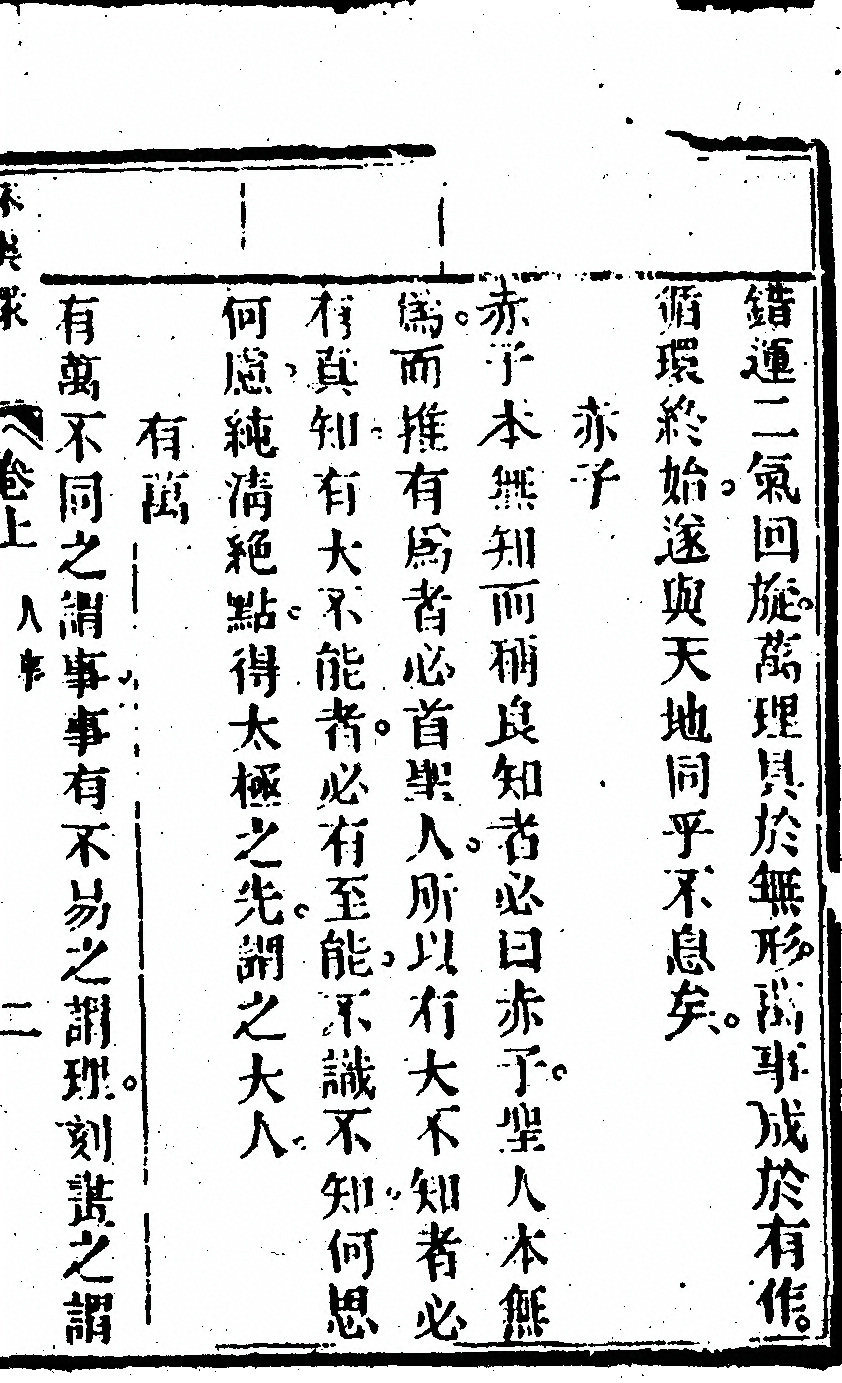 錯運二氣回旋。萬理具於無形。萬事成於有作。
循環終始。遂與天地同乎不息矣。
赤子
赤子本無知而稱良知者必曰赤子。聖人本無
為。而推有為者必首聖人。所以有大不知者必
有真知。有大不能者。必有至能。不識不知。何思
何慮。純清絕點。得太極之先。謂之大人。
有萬
有萬不同之謂事。事有不易之謂理。刻畫之謂
卷上 人事 二